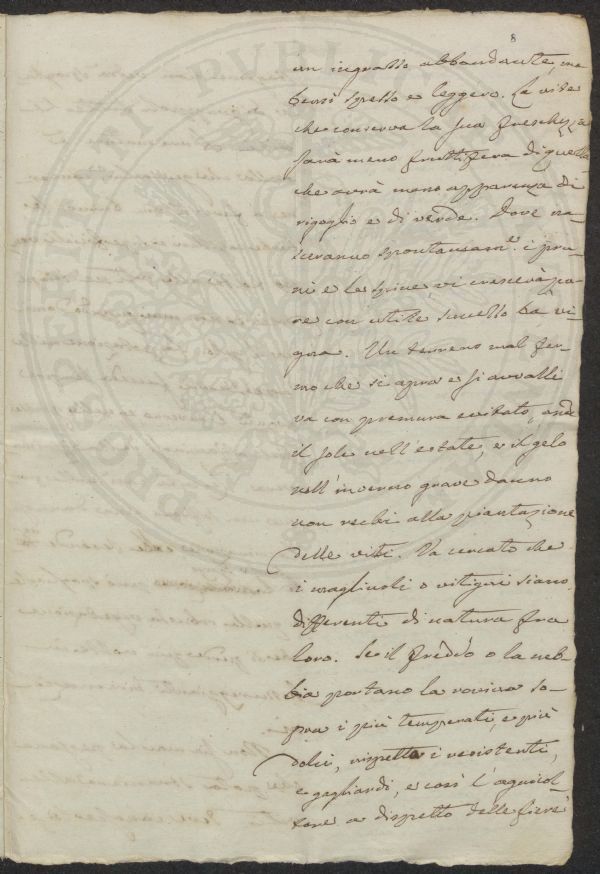 8
un ingrasso abbondante, ma
bensì spesso e leggero. La vite
che conserva la sua freschezza
sarà meno fruttifera di quella
che avrà meno apparenza di
rigoglio e di verde. Dove na-
sceranno spontaneam.e i pru-
ni e le spine vi crescerà pa-
re con utile successo la vi-
gna. Un terreno mal fer-
mo che si apra e si avvalli
va con premura evitato, onde
il sole nell'estate, e il gelo
nell'inverno grave danno
non rechi alla piantazione
delle viti. Va cercato che
i magliuoli o vitigni siano
differenti di natura fra
loro. Se il freddo o la neb-
bia portano la rovina so-
pra i più temperati, e più
dolci, rispetta i resistenti,
e gagliardi, e così l'agricol-
tore a dispetto delle fiere
PROSPERITATI PUBLICAE